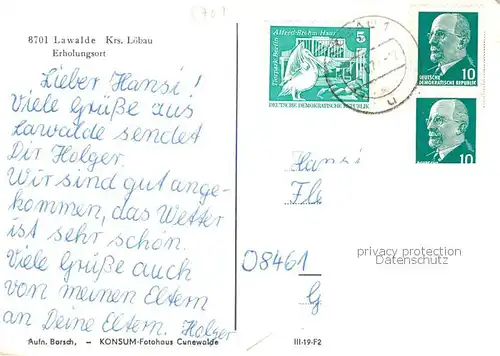 8701
8701 Lawalde Krs. Löbau
Erholungsort
Lieber Hansi!
Viele Grüße aus
Lawalde sendet
Dir Holger.
Wir sind gut ange-
kommen, das Wetter
ist sehr schön.
Viele Grüße auch
von meinen Eltern
an Deine Eltern. Holger
Aufn. Borsch, – KONSUM-Fotohaus Cunewalde
III-19-F2
Alfred-Brehm-Haus
Tierpark Berlin
5
DEUTSCHE DEMOKRATISCHE REPUBLIK
10
DEUTSCHE
DEMOKRATISCHE REPUBLIK
10
Hansi
Fle
privacy protection
Datenschutz
O8461